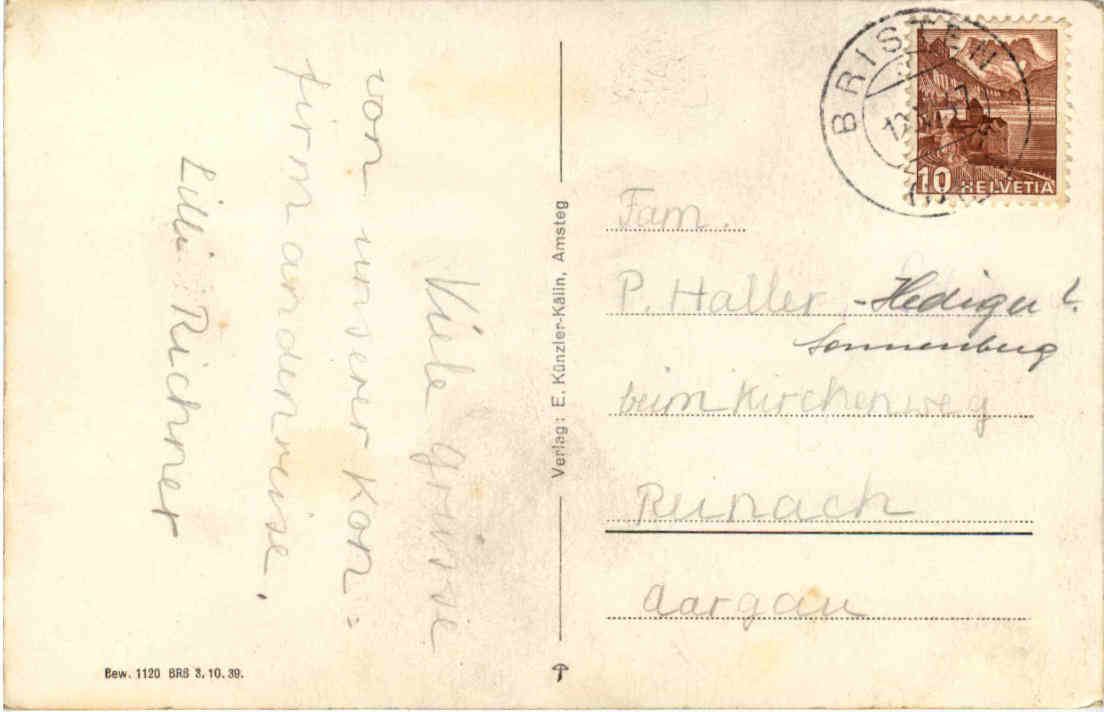 Viele Grüsse
von unserer Kon=
firmandenreise.
Lilli Richner
Bew. 1120 BRB 3.10.39.
Verlag: E. Künzler-Kälin, Amsteg
BRISTEN
10 HELVETIA
Fam.
P. Haller - Hediger
Sonnenberg
beim Kirchenweg
Reinach
Aargau